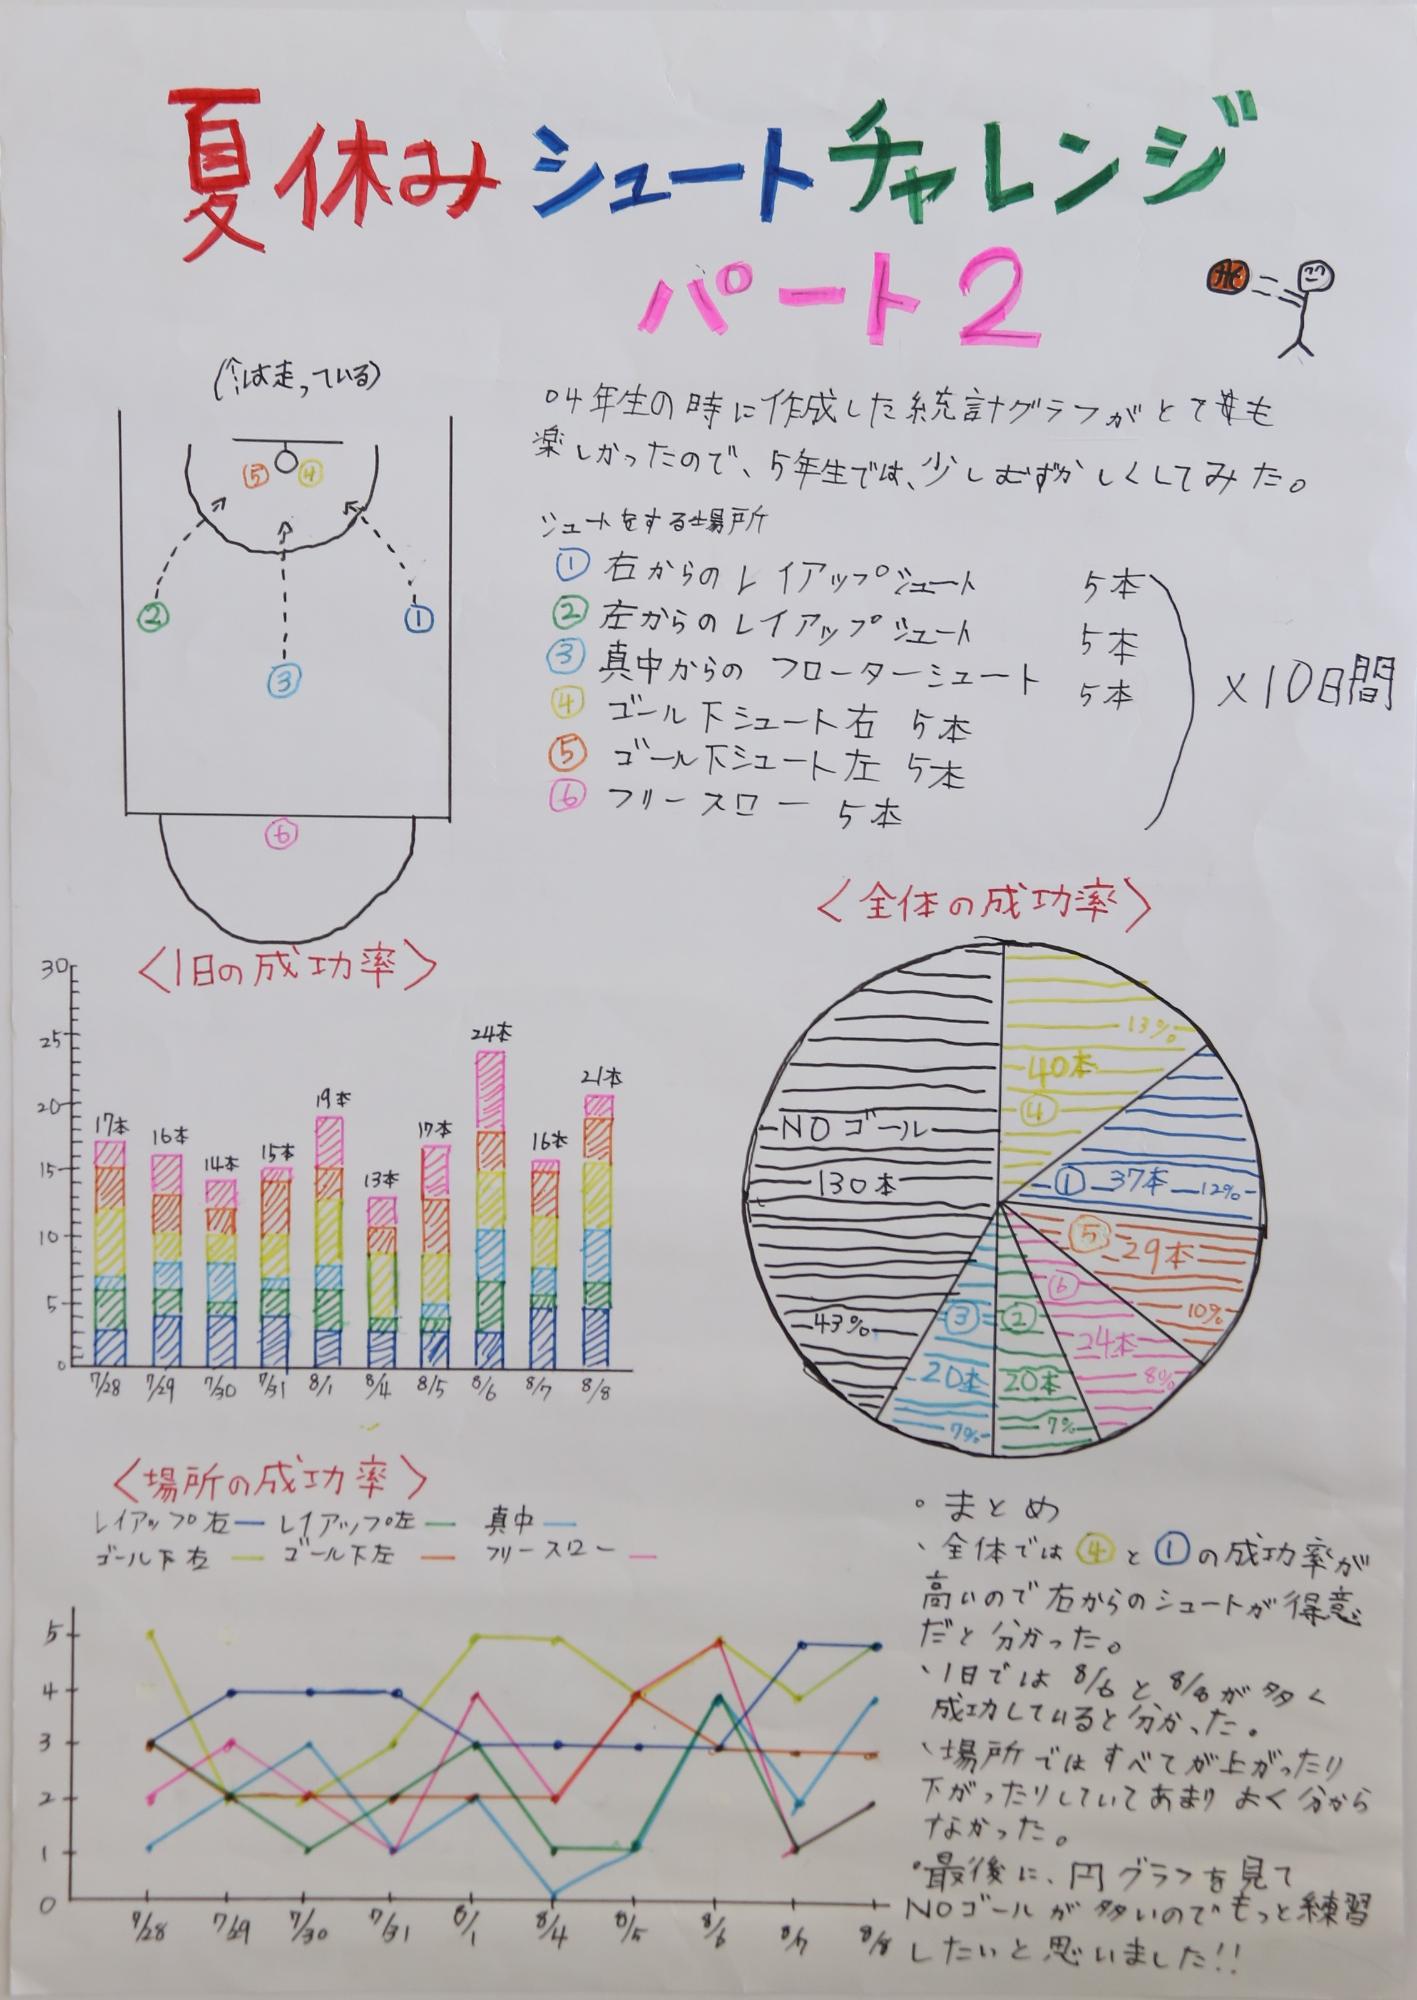 夏休みシュートチャレンジ
パート2
(↑は走っている)
⑤ ④
② ①
③
⑥
○4年生の時に作成した統計グラフがとても
楽しかったので、5年生では、少しむずかしくしてみた。
シュートをする場所
① 右からのレイアップシュート 5本
② 左からのレイアップシュート 5本
③ 真中からの フローターシュート 5本
④ ゴール下シュート右 5本
⑤ ゴール下シュート左 5本
⑥ フリースロー 5本
×10日間
〈1日の成功率〉
30
25
20
15
10
5
0
17本 16本 14本 15本 19本 13本 17本 24本 16本 21本
7/28 7/29 7/30 7/31 8/1 8/4 8/5 8/6 8/7 8/8
〈全体の成功率〉
13%
40本
④
① 37本 12%
⑤ 29本
10%
⑥
24本
8%
②
20本
7%
③
20本
7%
NOゴール
130本
43%
〈場所の成功率〉
レイアップ右 レイアップ左 真中
ゴール下右 ゴール下左 フリースロー
5
4
3
2
1
0
7/28 7/29 7/30 7/31 8/1 8/4 8/5 8/6 8/7 8/8
○ まとめ
、全体では④と①の成功率が
高いので右からのシュートが得意
だと分かった。
、1日では8/6と8/8が多く
成功していると分かった。
、場所ではすべてが上がったり
下がったりしていてあまりよく分から
なかった。
○最後に、円グラフを見て
NOゴールが多いのでもっと練習
したいと思いました!!